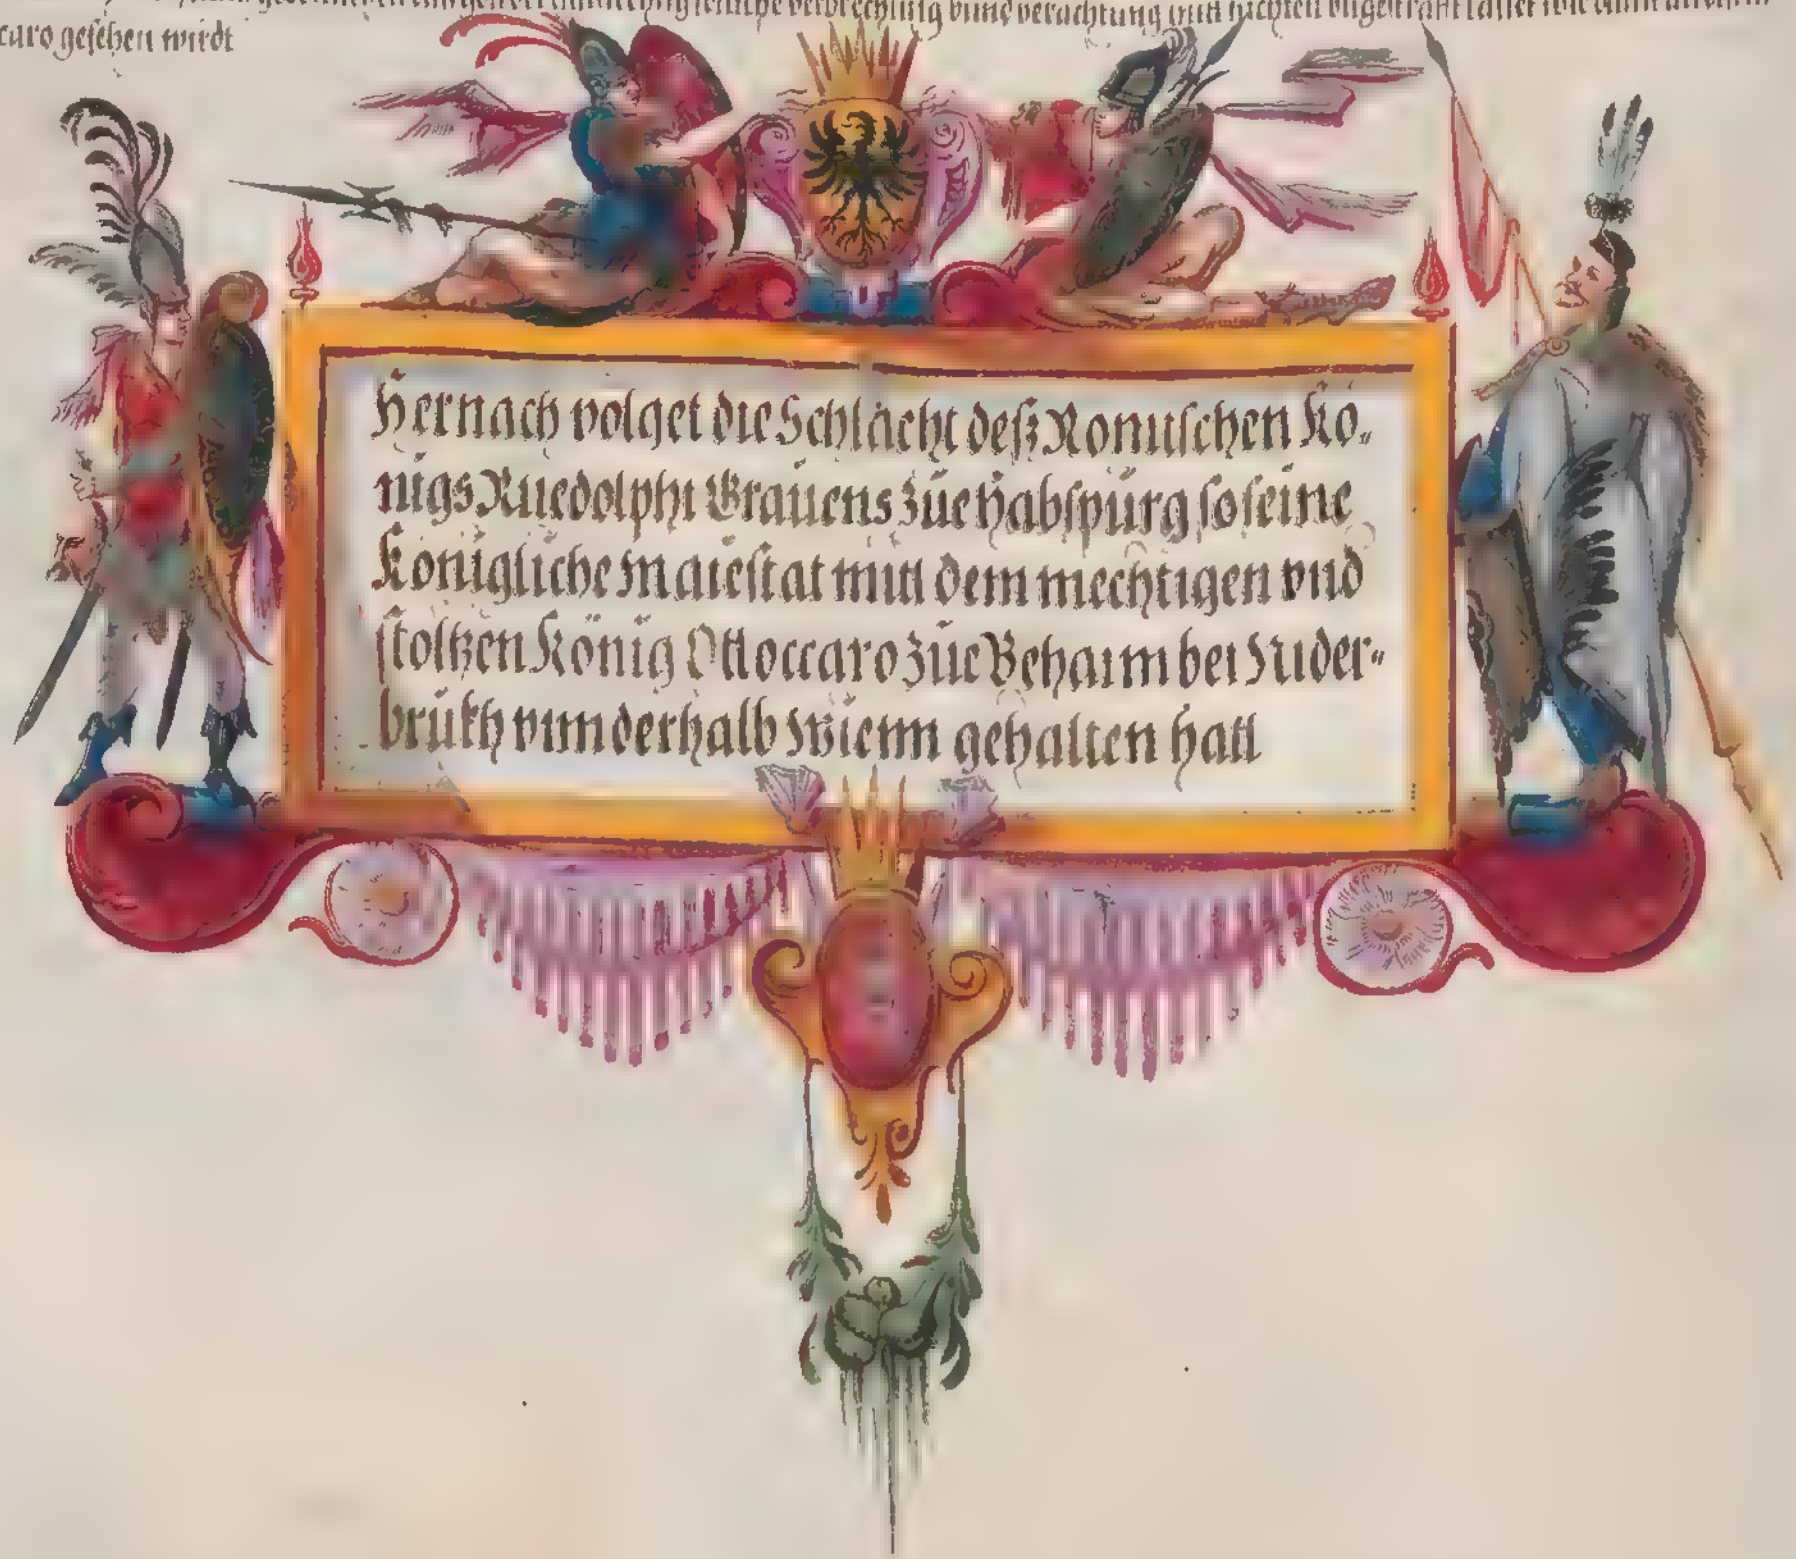 vnnd verachtung mitt nichten vngestrafft lasset wie
caro gesehen wirdt
Hernach volget die Schlācht deß Romischen Kö„
nigs Ruedolphi Grauens zue Habspurg so seine
Königliche Maiestat mitt dem mechtigen vnd
stoltzen König Ottoccaro zue Behaim bei Nider„
brukh vnnderhalb Wienn gehalten hatt